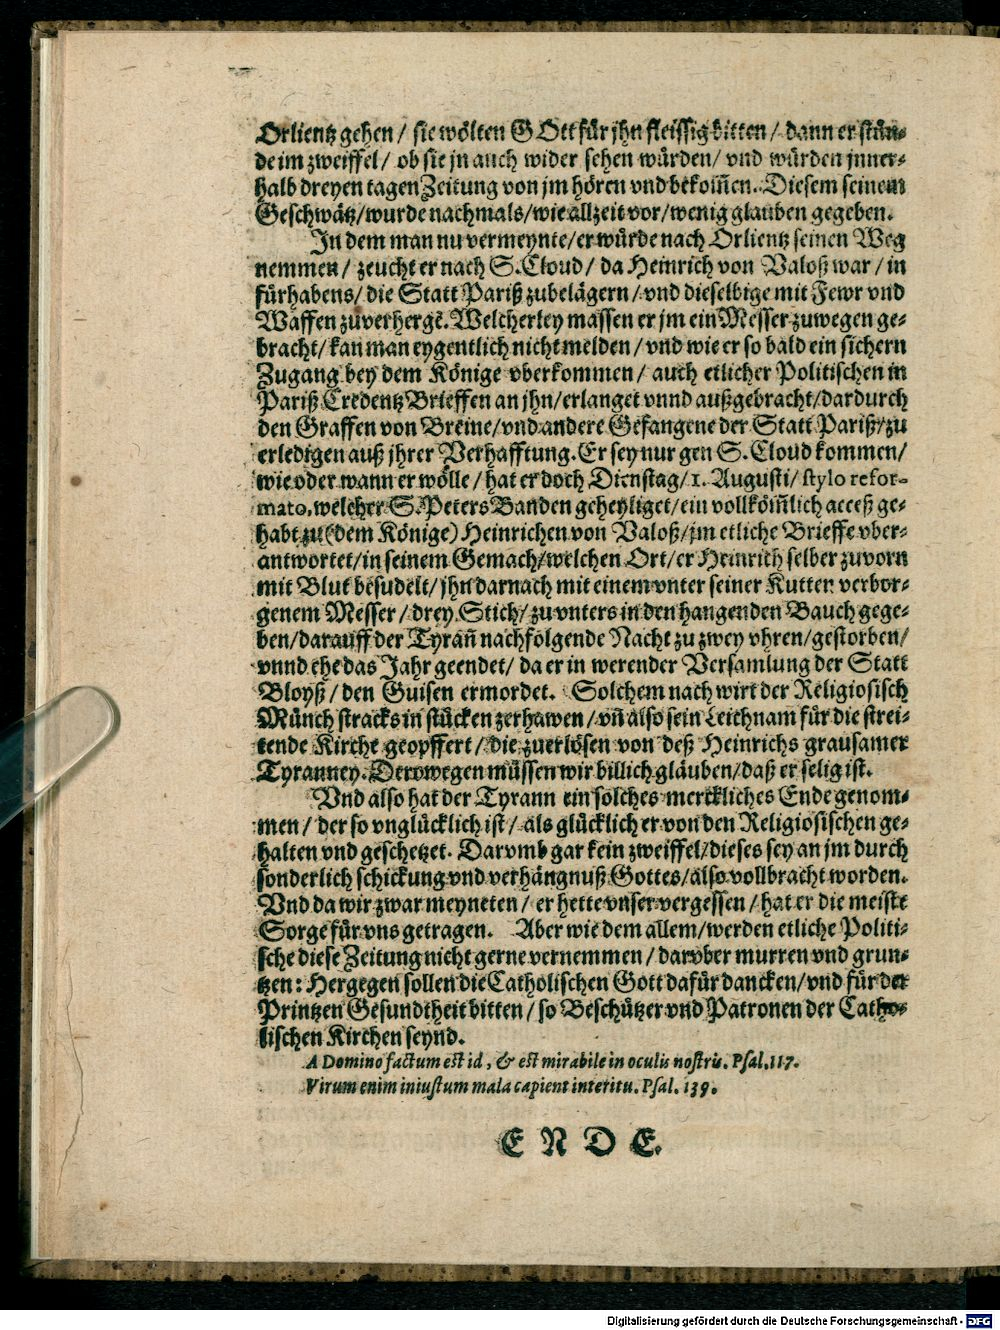 Orlientz gehen / sie wölten GOtt für jhn fleissig bitten / dann er stün⸗
de im zweiffel / ob sie jn auch wider sehen würden / vnd würden jnner⸗
halb dreyen tagen Zeitung von jm hören vnd bekom̃en. Diesem seinem
Geschwätz / wurde nachmals / wie allzeit vor / wenig glauben gegeben.
In dem man nu vermeynte / er würde nach Orlientz seinen Weg
nemmen / zeucht er nach S. Cloud / da Heinrich von Valoß war / in
fürhabens / die Statt Pariß zubelägern / vnd dieselbige mit Fewr vnd
Waffen zuverhergẽ. Welcherley massen er jm ein Messer zuwegen ge⸗
bracht / kan man eygentlich nicht melden / vnd wie er so bald ein sichern
Zugang bey dem Könige vberkommen / auch etlicher Politischen in
Pariß Credentz Brieffen an jhn / erlanget vnnd außgebracht / dardurch
den Graffen von Breine / vnd andere Gefangene der Statt Pariß / zu
erledigen auß jhrer Verhafftung. Er sey nur gen S. Cloud kommen /
wie oder wann er wölle / hat er doch Dienstag / 1. Augusti / stylo refor-
mato, welcher S. Peters Banden geheyliget / ein vollköm̃lich acceß ge⸗
habt zu (dem Könige) Heinrichen von Valoß / jm etliche Brieffe vber⸗
antwortet / in seinem Gemach / welchen Ort / er Heinrich selber zuvorn
mit Blut besudelt / jhn darnach mit einem vnter seiner Kutten verbor⸗
genem Messer / drey Stich / zu vnters in den hangenden Bauch gege⸗
ben / darauff der Tyrañ nachfolgende Nacht zu zwey vhren / gestorben /
vnnd ehe das Jahr geendet / da er in werender Versamlung der Statt
Bloyß / den Guisen ermordet. Solchem nach wirt der Religiosisch
Münch stracks in stücken zerhawen / vñ also sein Leichnam für die strei⸗
tende Kirche geopffert / die zuerlösen von deß Heinrichs grausamer
Tyranney. Derowegen müssen wir billich gläuben / daß er selig ist.
Vnd also hat der Tyrann ein solches merckliches Ende genom⸗
men / der so vnglücklich ist / als glücklich er von den Religiosischen ge⸗
halten vnd geschetzet. Darvmb gar kein zweiffel / dieses sey an jm durch
sonderlich schickung vnd verhängnuß Gottes / also vollbracht worden.
Vnd da wir zwar meyneten / er hette vnser vergessen / hat er die meiste
Sorge für vns getragen. Aber wie dem allem / werden etliche Politi⸗
sche diese Zeitung nicht gerne vernemmen / darvber murren vnd grun⸗
tzen: Hergegen sollen die Catholischen Gott dafür dancken / vnd für der
Printzen Gesundtheit bitten / so Beschützer vnd Patronen der Catho⸗
lischen Kirchen seynd.
A Domino factum est id, & est mirabile in oculis nostris. Psal. 117.
Virum enim iniustum mala capient interitu. Psal. 139.
E N D E.
Digitalisierung gefördert durch die Deutsche Forschungsgemeinschaft - DFG